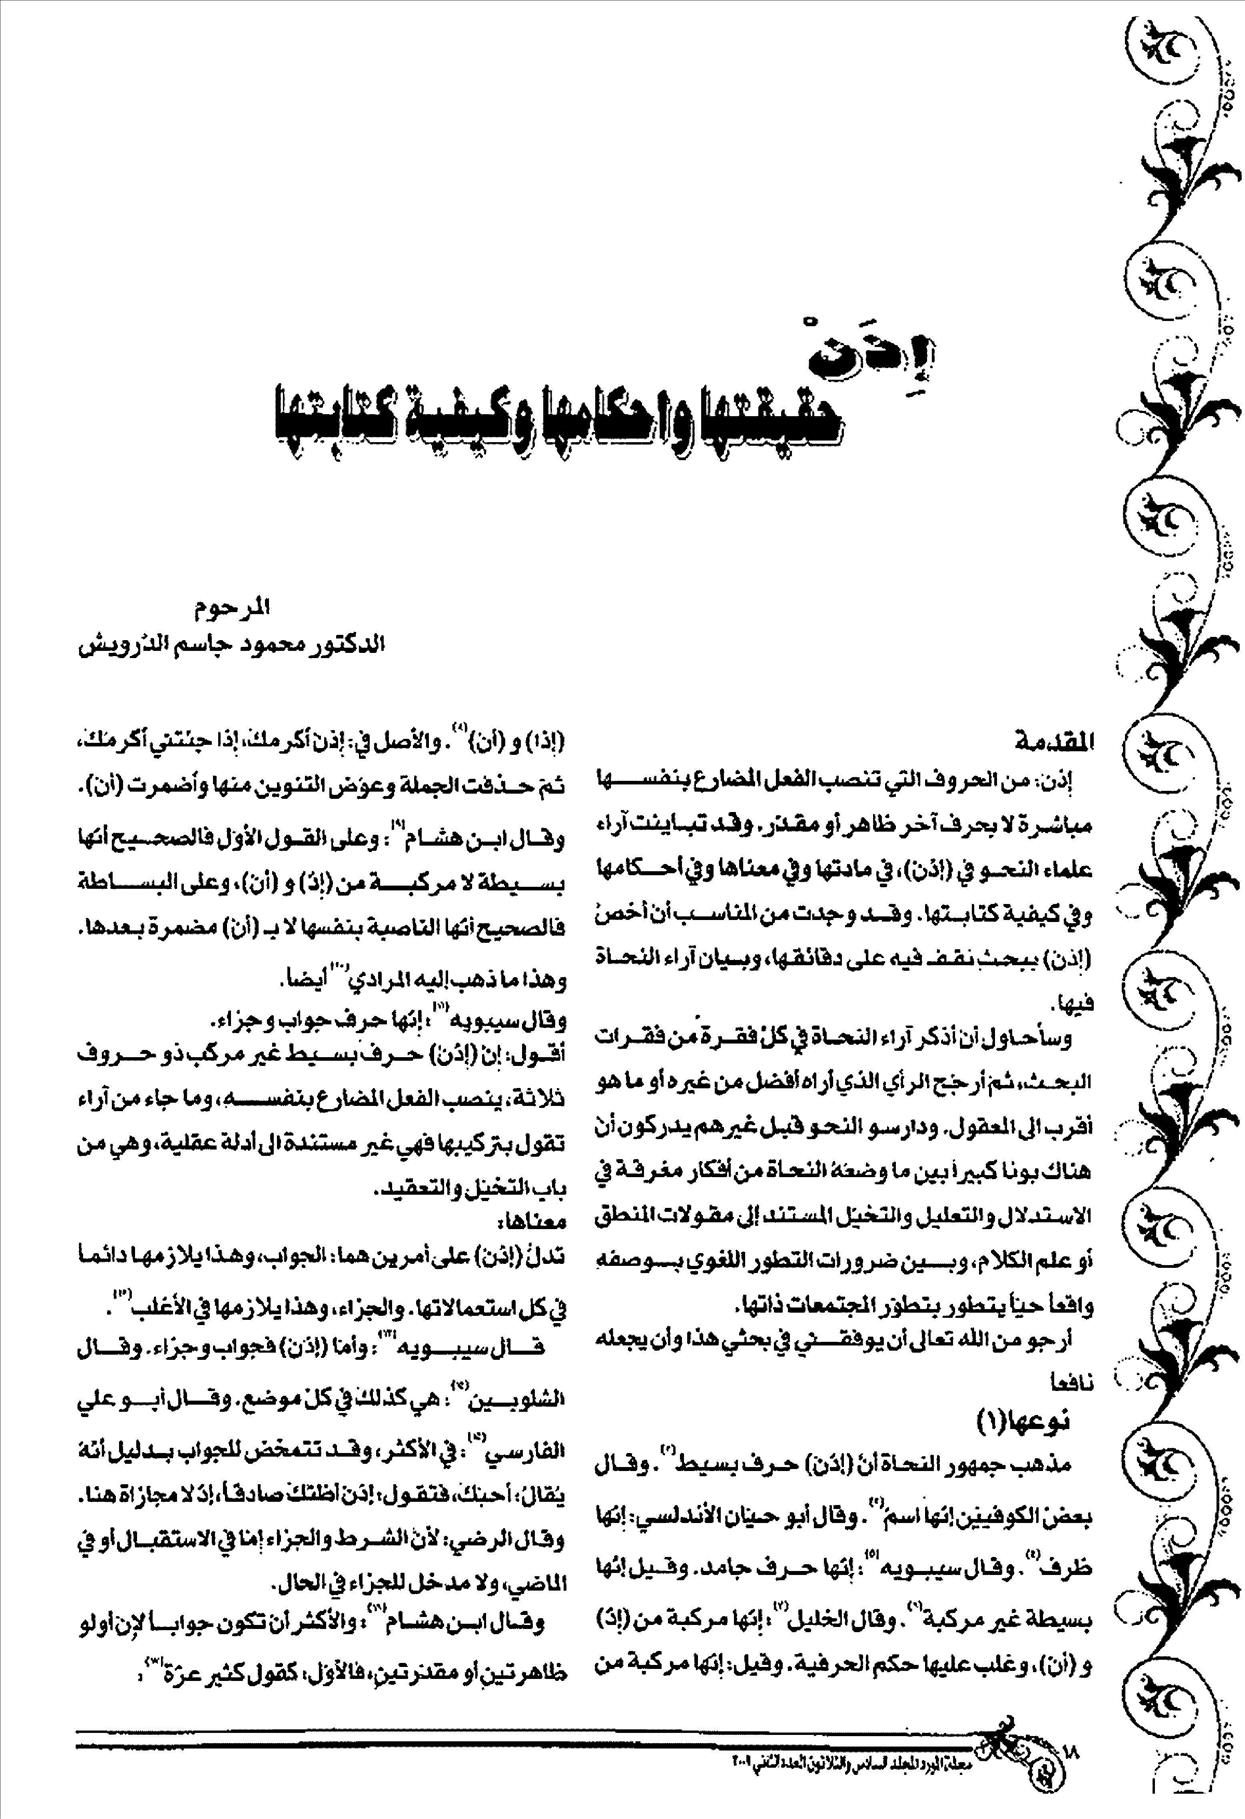 إِذَنْ
حقيقتها واحكامها وكيفية كتابتها
المرحوم
الدكتور محمود جاسم الدرويش
المقدمة
إذن: من الحروف التي تنصب الفعل المضارع بنفسها
مباشرة لا بحرف آخر ظاهر أو مقدّر. وقد تباينت آراء
علماء النحو في (إذن)، في مادتها وفي معناها وفي أحكامها
وفي كيفية كتابتها. وقد وجدت من المناسب أن أخصّ
(إذن) ببحث نقف فيه على دقائقها، وبيان آراء النحاة
فيها.
وسأحاول أن أذكر آراء النحاة في كلّ فقرة من فقرات
البحث، ثم أرجّح الرأي الذي أراه أفضل من غيره أو ما هو
أقرب الى المعقول. ودارسو النحو قبل غيرهم يدركون أنّ
هناك بونا كبيراً بين ما وضعه النحاة من أفكار مغرقة في
الاستدلال والتعليل والتخيّل المستند إلى مقولات المنطق
أو علم الكلام، وبين ضرورات التطور اللغوي بوصفه
واقعاً حيّاً يتطور بتطوّر المجتمعات ذاتها.
أرجو من الله تعالى أن يوفقني في بحثي هذا وأن يجعله
نافعاً
نوعها(١)
مذهب جمهور النحاة أنّ (إذن) حرف بسيط(٢). وقال
بعض الكوفيين إنها اسم(٣). وقال أبو حيّان الأندلسي: إنها
ظرف(٤). وقال سيبويه(٥): إنها حرف جامد. وقيل إنها
بسيطة غير مركبة(٦). وقال الخليل(٧): إنها مركبة من (إذ)
و (أن)، وغلب عليها حكم الحرفية. وقيل: إنها مركبة من
(إذا) و (أن)(٨). والأصل في: إذن أكرمك، إذا جئتني أكرمك،
ثمّ حذفت الجملة وعوّض التنوين منها وأضمرت (أن).
وقال ابن هشام(٩): وعلى القول الأوّل فالصحيح أنها
بسيطة لا مركبة من (إذ) و (أن)، وعلى البساطة
فالصحيح أنها الناصبة بنفسها لا بـ (أن) مضمرة بعدها.
وهذا ما ذهب إليه المرادي(١٠) أيضاً.
وقال سيبويه(١١): إنها حرف جواب وجزاء.
أقول: إنّ (إذن) حرف بسيط غير مركّب ذو حروف
ثلاثة، ينصب الفعل المضارع بنفسه، وما جاء من آراء
تقول بتركيبها فهي غير مستندة الى أدلة عقلية، وهي من
باب التخيّل والتعقيد.
معناها:
تدلّ (إذن) على أمرين هما: الجواب، وهذا يلازمها دائماً
في كل استعمالاتها. والجزاء، وهذا يلازمها في الأغلب(١٢).
قال سيبويه(١٣): وأمّا (إذن) فجواب وجزاء. وقال
الشلوبين(١٤): هي كذلك في كلّ موضع. وقال أبو علي
الفارسي(١٥): في الأكثر، وقد تتمحّض للجواب بدليل أنه
يُقال: أحبك، فتقول: إذن أظنك صادقاً، إذ لا مجازاة هنا.
وقال الرضي: لأنّ الشرط والجزاء إمّا في الاستقبال أو في
الماضي، ولا مدخل للجزاء في الحال.
وقال ابن هشام(١٦): والأكثر أن تكون جواباً لإن أو لو
ظاهرتين أو مقدرتين، فالأوّل: كقول كثير عزة(١٧):
١٨
مجلة المورد المجلد السادس والثلاثون العدد الثاني ٢٠٠٩